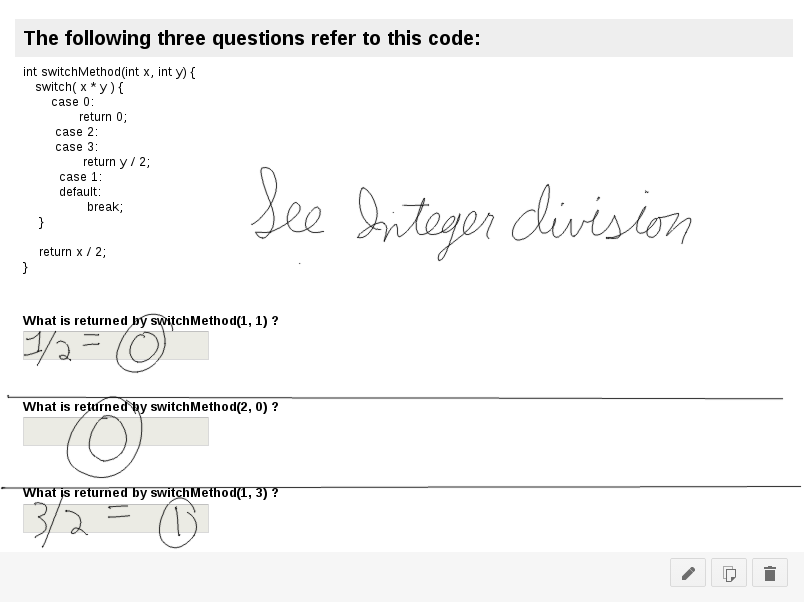 The following three questions refer to this code:
int switchMethod(int x, int y) {
switch( x * y ) {
case 0:
return 0;
case 2:
case 3:
return y / 2;
case 1:
default:
break;
}
return x / 2;
}
See Integer division
What is returned by switchMethod(1, 1) ?
1/2 = 0
What is returned by switchMethod(2, 0) ?
0
What is returned by switchMethod(1, 3) ?
3/2 = 1